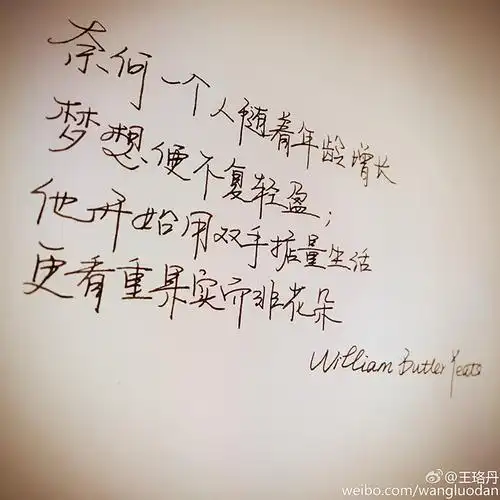 奈何一个人随着年龄增长
梦想便不复轻盈；
他开始用双手掂量生活
更看重果实而非花朵
William Butler Yeats
@王珞丹
weibo.com/wangluodan